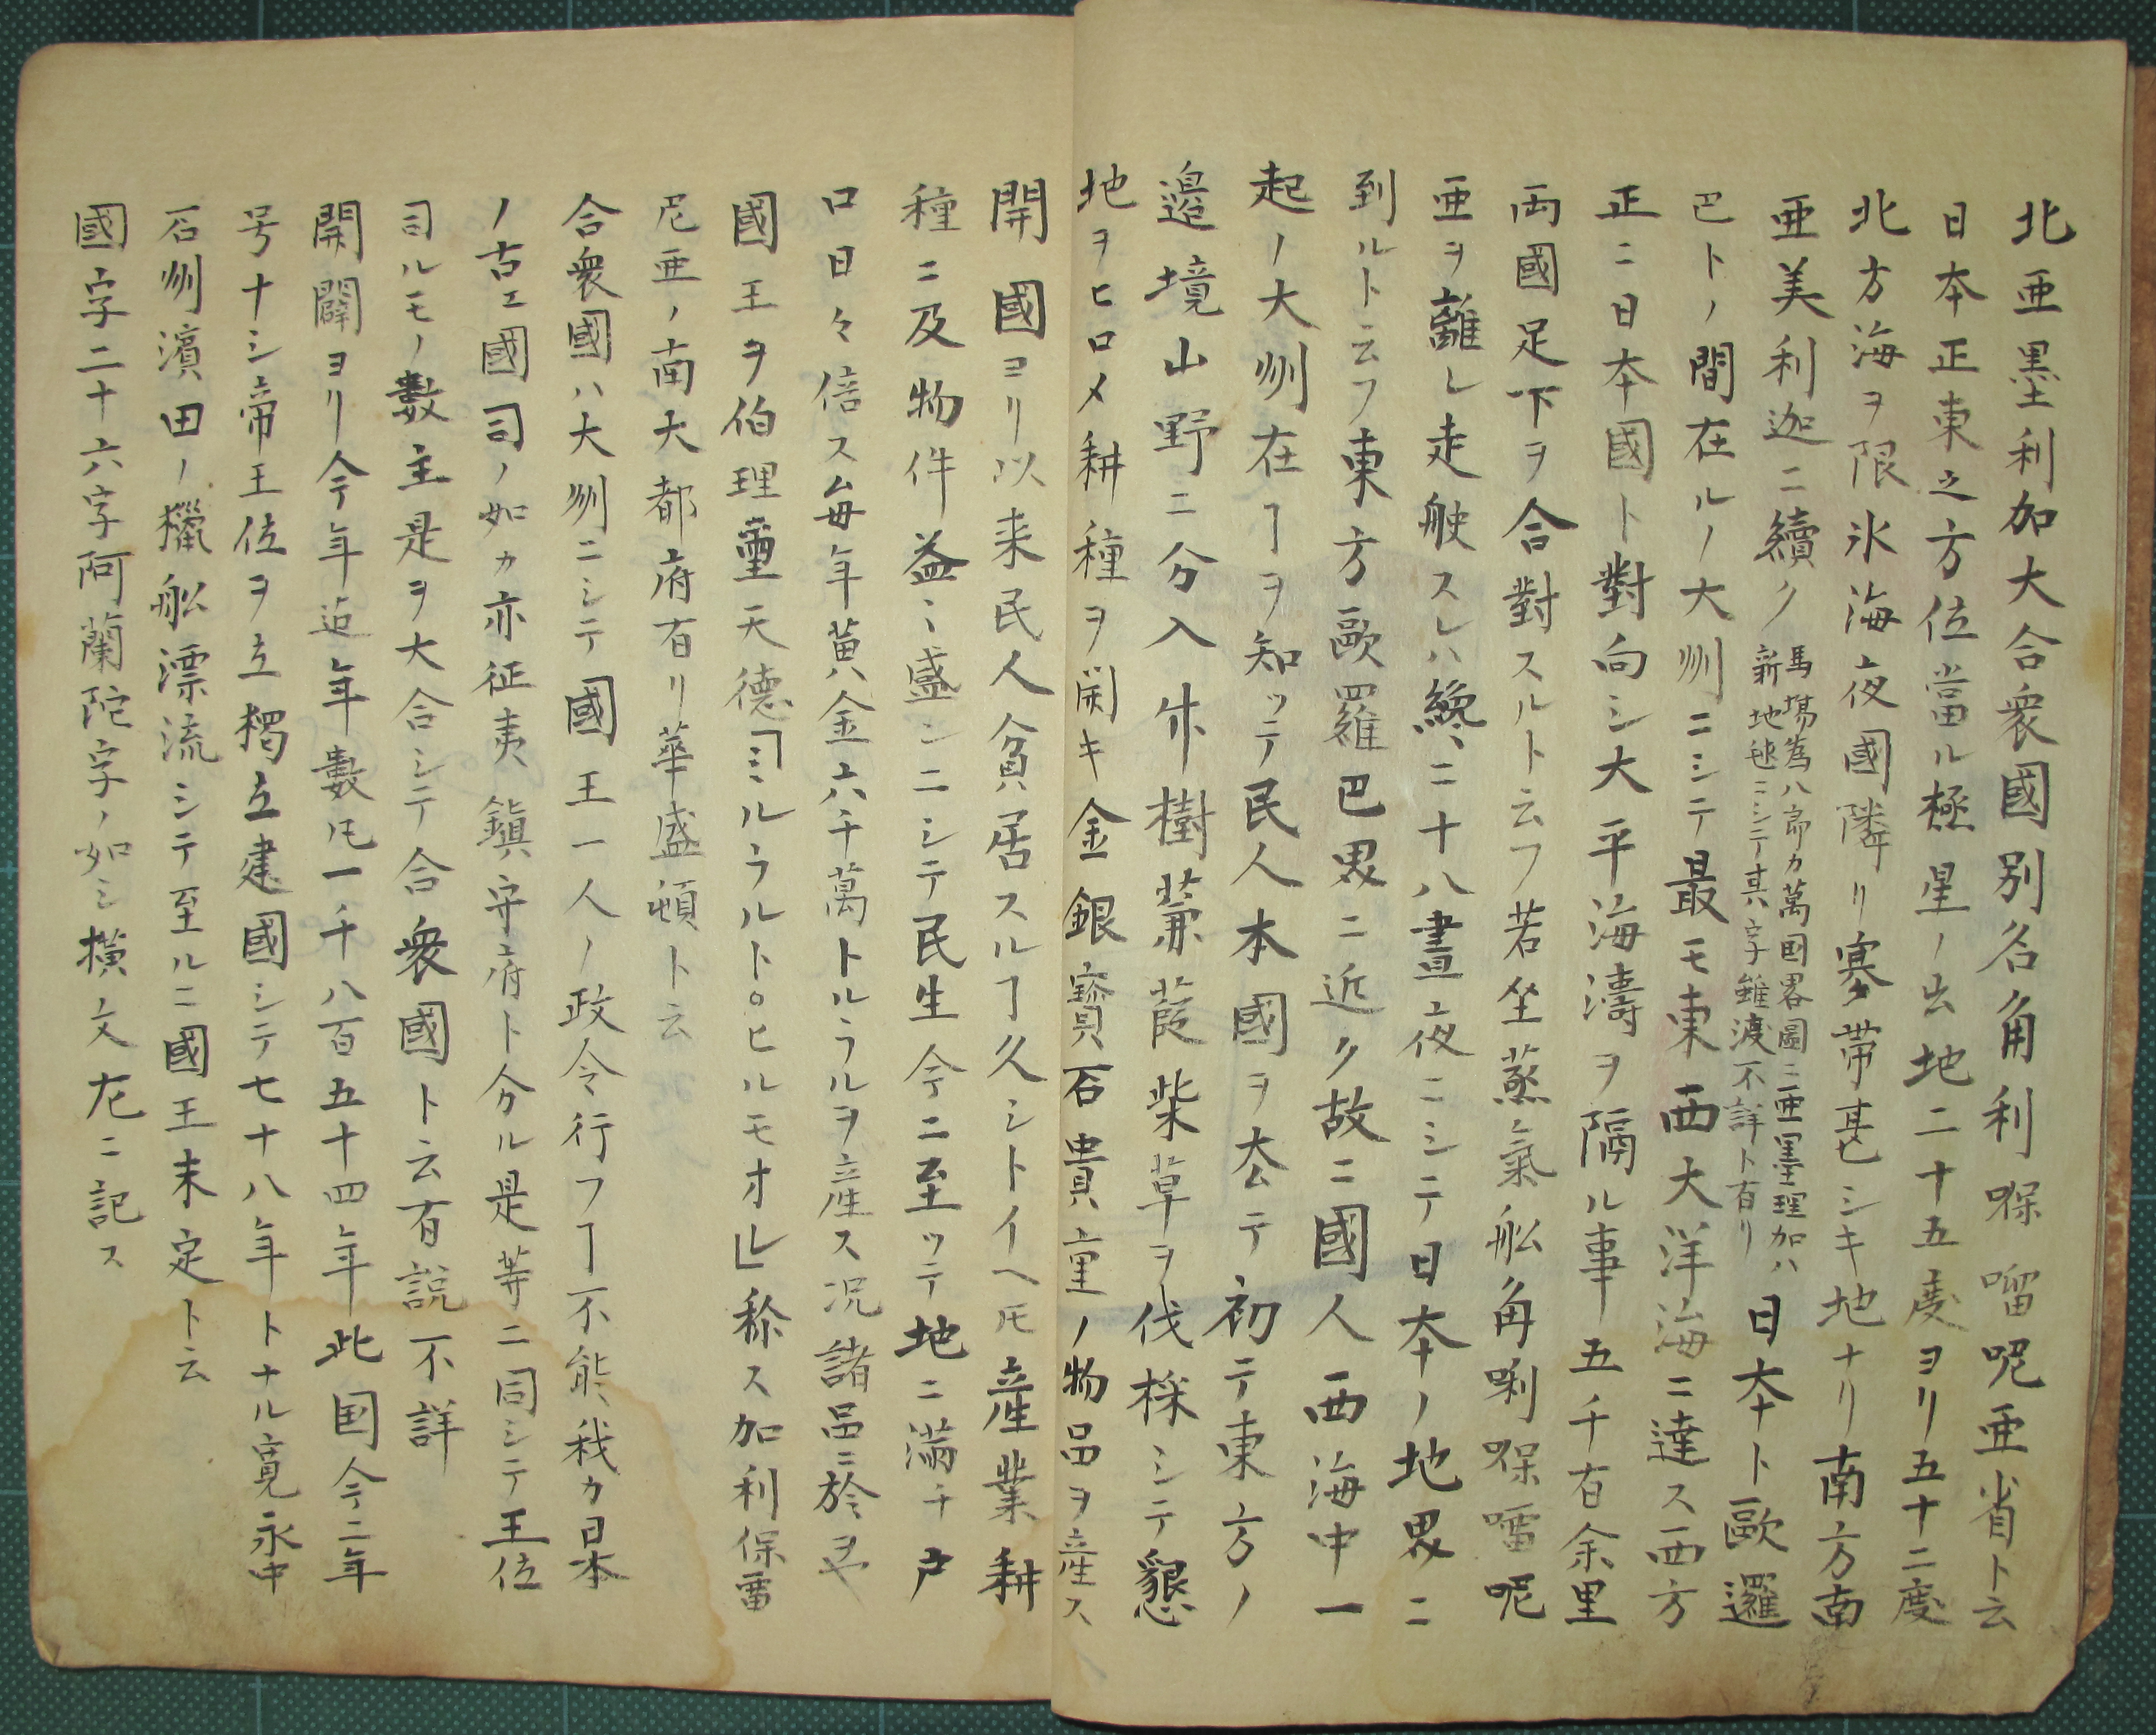 北亜墨利加大合衆國別名角利㗖㗰呢亜省ト云
日本正東之方位當ル極星ノ出地二十五度ヨリ五十二度
北方海ヲ限氷海夜國隣リ寒帯甚シキ地ナリ南方南
亜美利迦ニ續ク
馬塲為八郎カ萬國畧圖ニ亜墨理加ハ
新地毬ニシテ其字雖渡不詳ト有リ
日本ト歐邏
巴トノ間在ルノ大刕ニシテ最モ東西大洋海ニ達ス西方
正ニ日本國ト對向シ大平海濤ヲ隔ル事五千有余里
両國足下ヲ合對スルト云フ若坐蒸氣舩角唎㗖㗰呢
亜ヲ離レ走舩スレハ纔ニ十八晝夜ニシテ日本ノ地界ニ
到ルト云フ東方歐羅巴界ニ近ク故ニ國人西海中一
起ノ大刕在ヿヲ知ッテ民人本國ヲ去テ初テ東方ノ
邉境山野ニ分入竹樹蒹葭柴草ヲ伐採シテ懇
地ヲヒロメ耕種ヲ開キ金銀寳石貴重ノ物品ヲ産ス
開國ヨリ以来民人貧居スルヿ久シトイヘ𪜈産業耕
種ニ及物件益ミ盛ンニシテ民生今ニ至ッテ地ニ満チ戸
口日々倍ス毎年黄金六千萬トルラルヲ産ス况諸品ニ於ヲヤ
國王ヲ伯理璽天徳「ミルラルト。ヒルモオ」称ス加利保雷
尼亜ノ南大都府有リ華盛頓ト云
合衆國ハ大刕ニシテ國王一人ノ政令行フヿ不能我カ日本
ノ古エ國司ノ如カ亦征夷鎮守府ト分ル是等ニ同シテ王位
司ルモノ數主是ヲ大合シテ合衆國ト云有説不詳
開闢ヨリ今年迠年數凡一千八百五十四年此国今ニ年
号ナシ帝王位ヲ立獨立建國シテ七十八年トナル寛永中
石刕濱田ノ獵舩漂流シテ至ルニ國王末定ト云
國字二十六字阿蘭陀字ノ如シ横文左ニ記ス